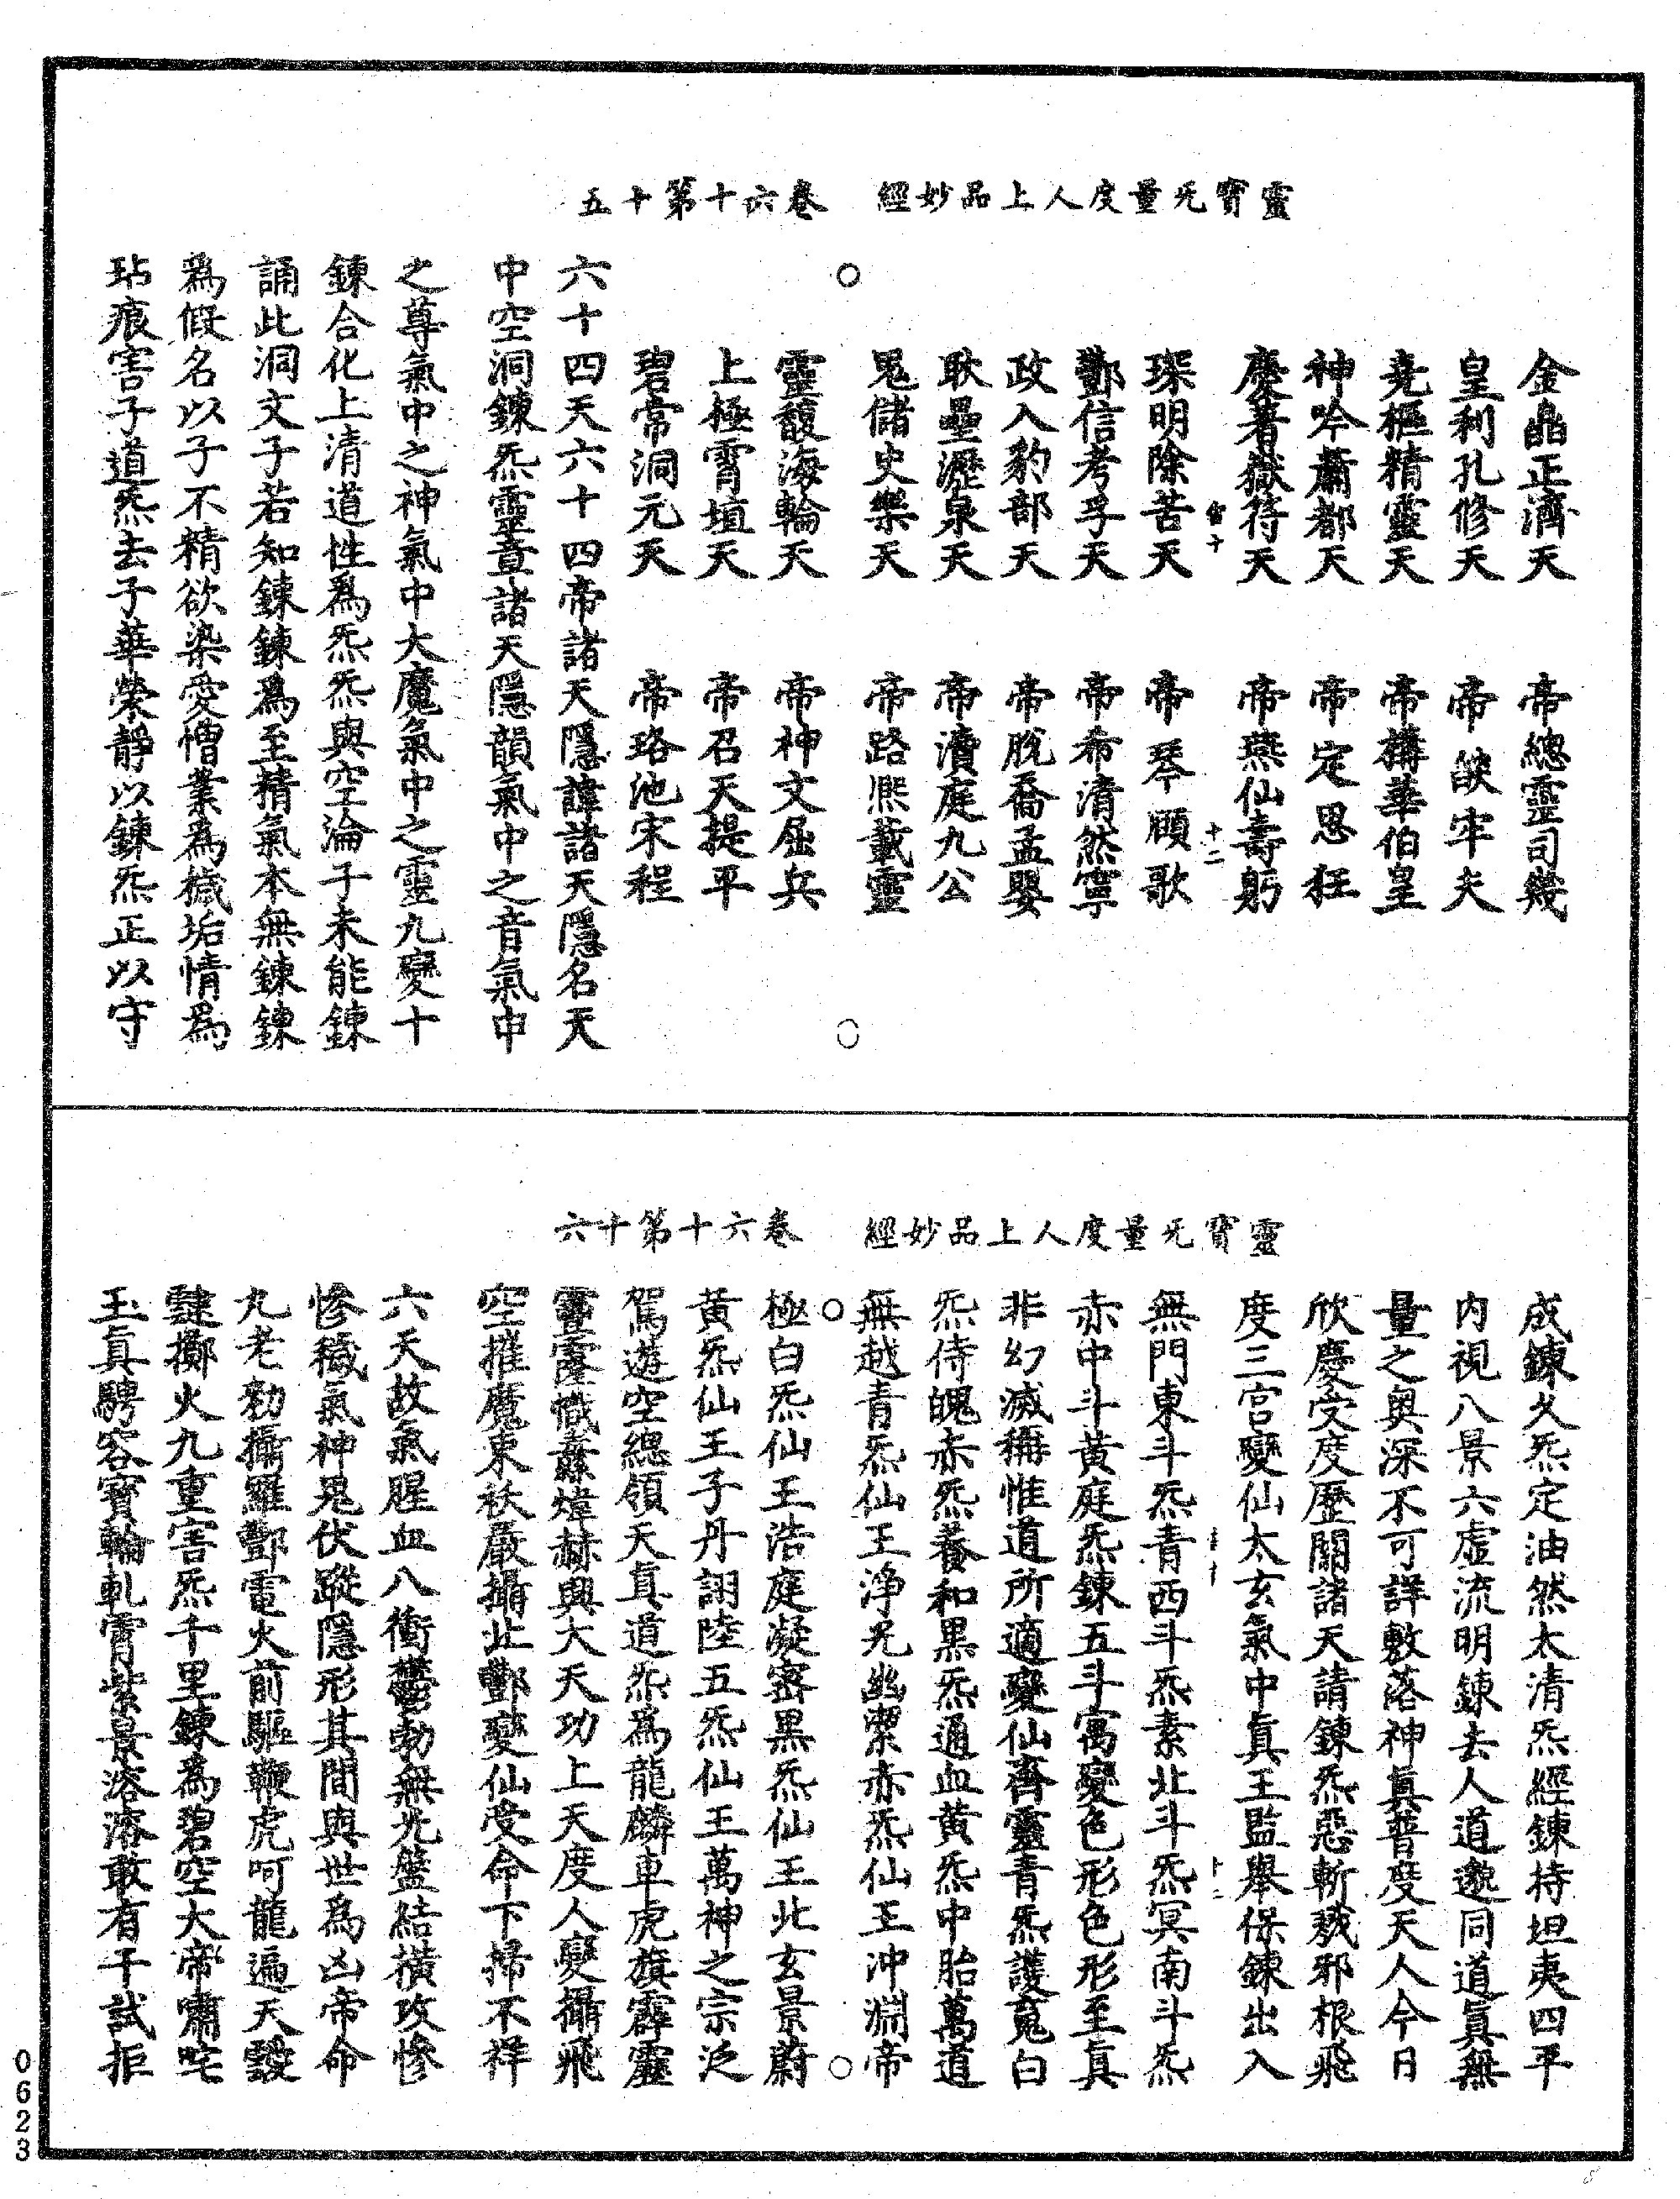 靈寶无量度人上品妙經　卷六十第十五
金晶正濟天　帝總靈司幾
皇利孔修天　帝燄牢夫
堯樞精靈天　帝構華伯皇
神吟肅都天　帝定恩狂
慶著獄符天　帝燕仙壽躬
琛明除苦天　帝琴頋歌
酆信考孚天　帝希清然寧
政入豹部天　帝脫喬孟嬰
耿壘瀝泉天　帝瀆庭九公
鬼儲史樂天　帝路熙載靈
靈馥海輪天　帝神文屈兵
上極霄垣天　帝召天提平
碧常洞元天　帝珞池宋程
六十四天六十四帝諸天隱諱諸天隱名天
中空洞鍊炁靈章諸天隱韻氣中之音氣中
之尊氣中之神氣中大魔氣中之靈九變十
鍊合化上清道性爲炁炁與空淪子未能鍊
誦此洞文子若知鍊鍊爲至精氣本無鍊鍊
爲假名以子不精欲染愛憎業爲穢垢情爲
玷痕害子道炁去子華榮靜以鍊炁正以守
靈寶无量度人上品妙經　卷六十第十六
成鍊久炁定油然太清炁經鍊持坦夷四平
內視八景六虛流明鍊去人道邈同道眞無
量之奧深不可詳敷落神眞普度天人今日
欣慶受度歷關諸天請鍊炁惡斬穢邪根飛
度三宮變仙太玄氣中眞王監舉保鍊出入
無門東斗炁青西斗炁素北斗炁冥南斗炁
赤中斗黃庭炁鍊五斗寓變色形色形至眞
非幻滅稱惟道所適變仙齊靈青炁護䰟白
炁侍魄赤炁養和黑炁通血黃炁中胎萬道
無越青炁仙王淨光幽潔赤炁仙王沖淵帝
極白炁仙王浩庭凝密黑炁仙王北玄景蔚
黃炁仙王子丹詡陸五炁仙王萬神之宗泛
駕遊空總領天眞道炁爲龍麟車虎旗霹靂
霞幟纛煒赫與大天功上天度人變攝飛
空摧魔束袄嚴攝止酆變仙受命下掃不祥
六天故氣腥血八衝鬱勃無光盤結橫攻慘
慘穢氣神鬼伏蹤隱形其間與世爲凶帝命
九老勑攝羅酆電火前驅鞭虎呵龍遍天
擲火九重害炁千里鍊爲碧空大帝嘯咤
玉眞騁容寶輪軋霄紫景溶溶敢有干試拒
0623